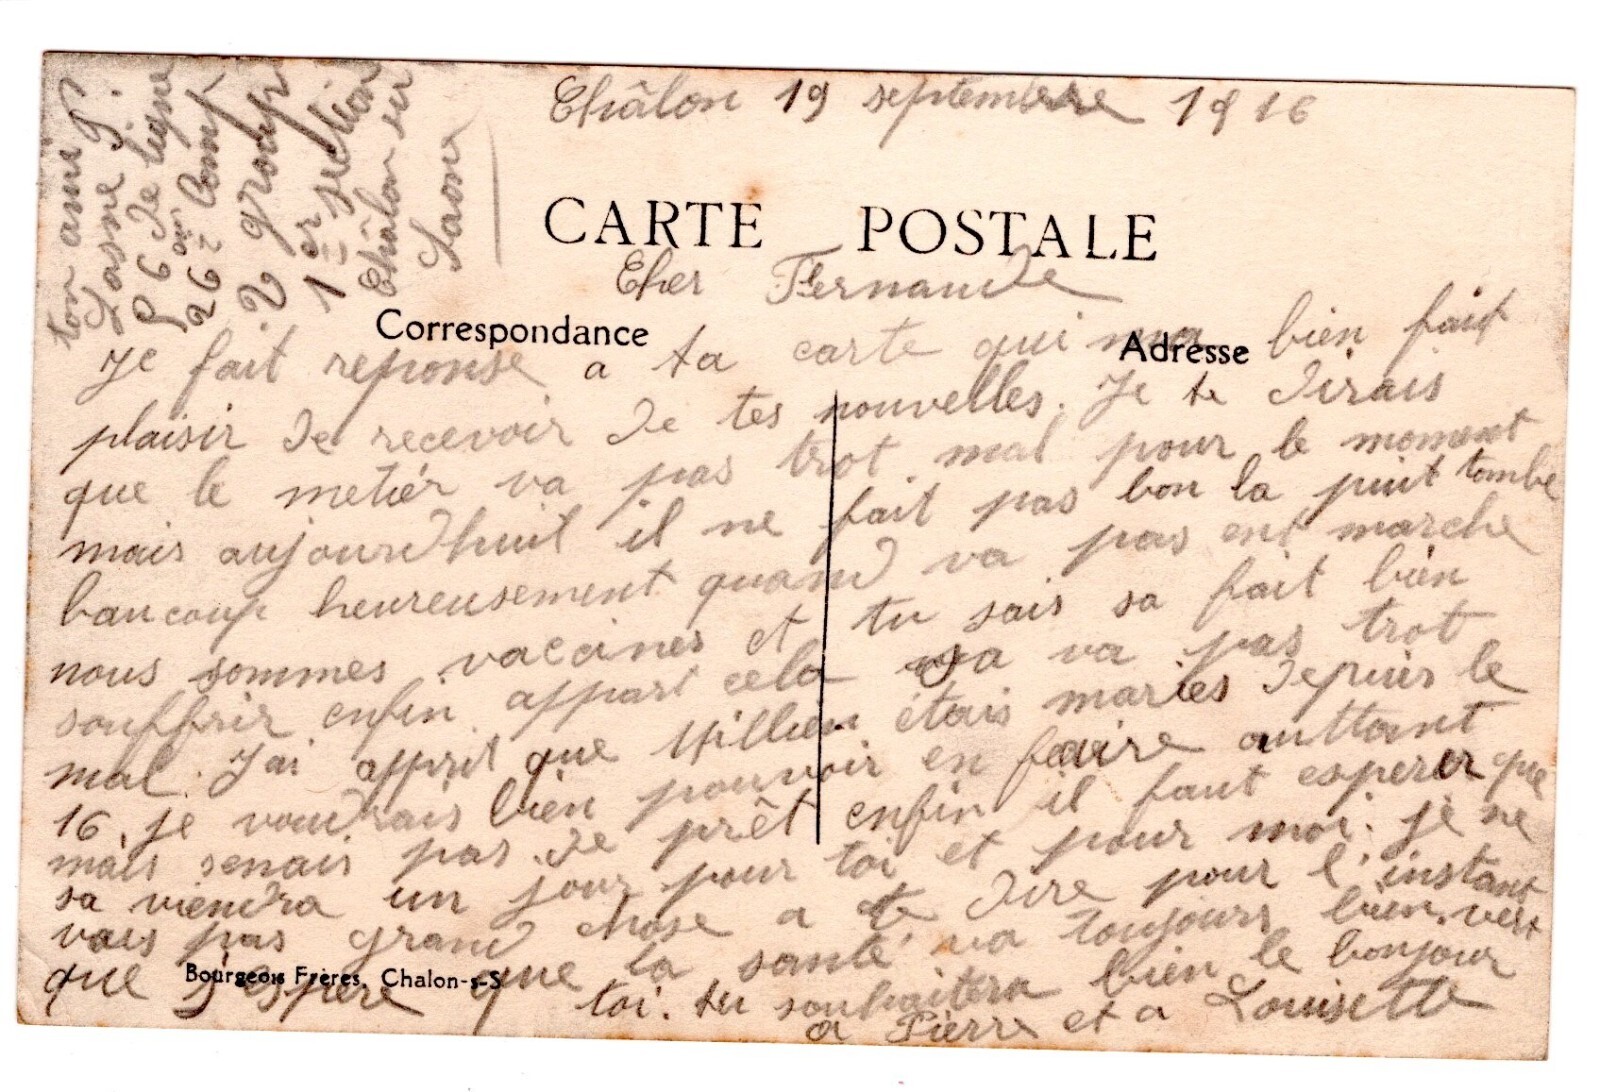 Châlon 19 septembre 1916
CARTE POSTALE
Cher Fernande
Correspondance
Adresse
Je fait reponse a ta carte qui ma bien fait
plaisir de recevoir de tes nouvelles. Je te dirais
que le metiér va pas trot mal pour le moment
mais aujourd'huit il ne fait pas bon la pluit tombe
baucoup heureusement quand va pas ent marche
nous sommes vaccines et tu sais sa fait bien
souffrir enfin appart cela sa va pas trot
mal. J'ai apprit que étais maries depuis le
16. je voudrais bien pouvoir en faire auttant
mais senais pas de prêt enfin il faut esperer que
sa viendra un jour pour toi et pour moi. je ne
vois pas grand chose a te dire pour l'instant
que la santé va toujours bien. vers
que j'espère que toi. tu souhaitera bien le bonjour
a Pierre et a Louisette
Bourgeois Frères, Chalon-s-S
ton ami P.
Lasne P.
56 de ligne
26 eme Comp
2 groupe
1er section
Châlon sur
Saone